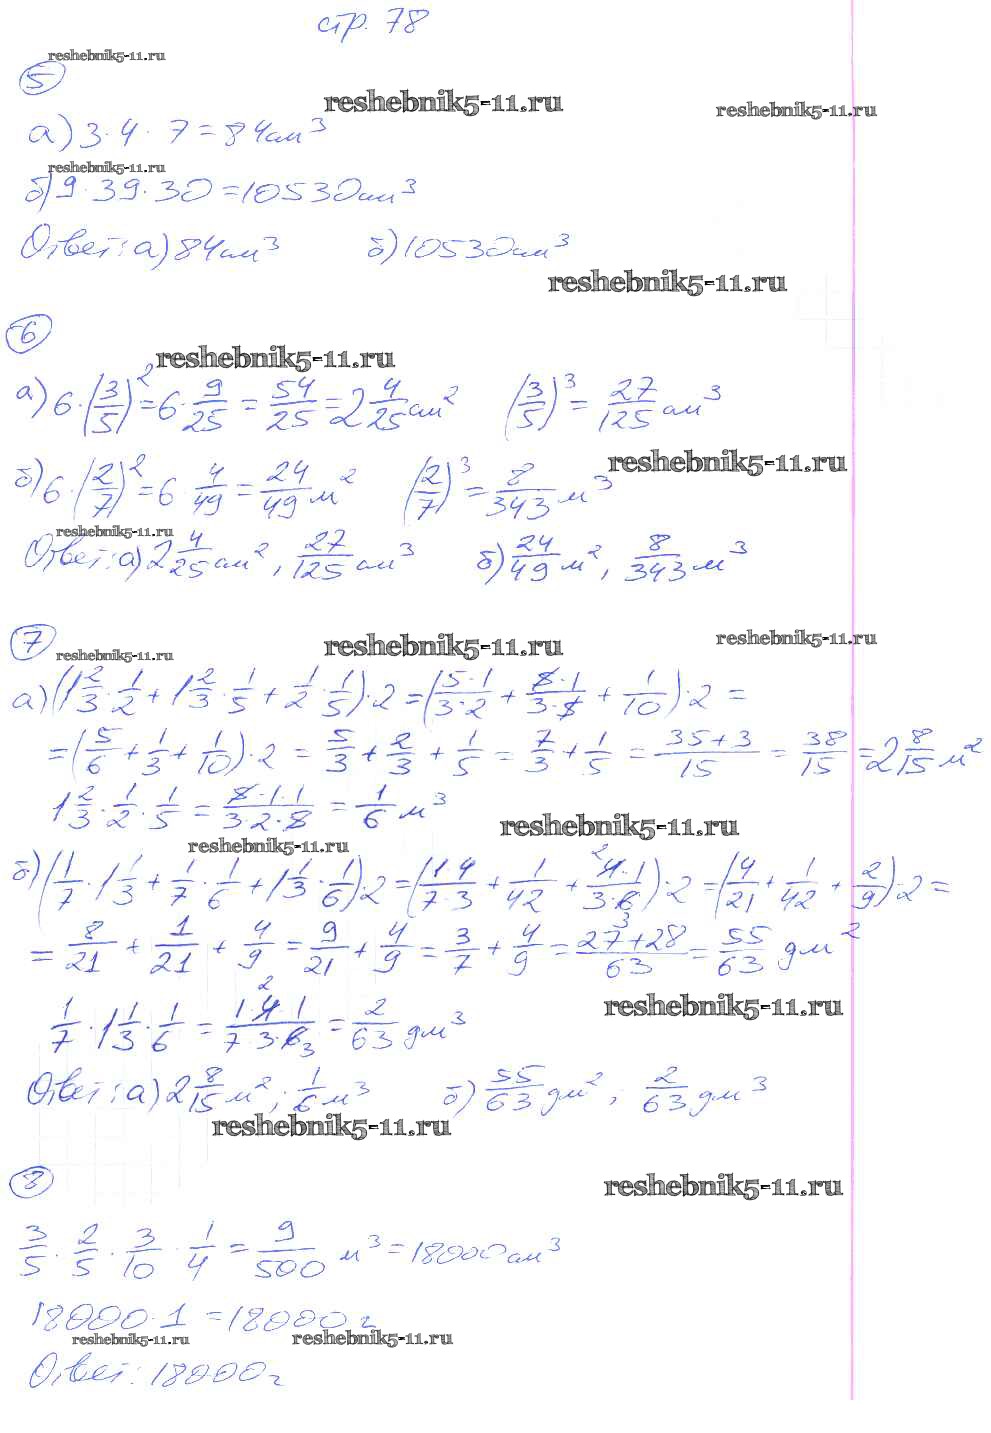 стр. 78
reshebnik5-11.ru
5
reshebnik5-11.ru
reshebnik5-11.ru
а) 3·4·7=84см³
reshebnik5-11.ru
б) 9·39·30=10530см³
Ответ: а) 84см³ б) 10530см³
reshebnik5-11.ru
6
reshebnik5-11.ru
а) 6·(3/5)²=6·9/25=54/25=2 4/25 см² (3/5)³=27/125 см³
reshebnik5-11.ru
б) 6·(2/7)²=6·4/49=24/49 м² (2/7)³=8/343 м³
reshebnik5-11.ru
Ответ: а) 2 4/25 см², 27/125 см³ б) 24/49 м², 8/343 м³
7
reshebnik5-11.ru
reshebnik5-11.ru
reshebnik5-11.ru
а) (1 2/3·1/2+1 2/3·1/5+1/2·1/5)·2=(5·1/3·2+5·1/3·5+1/10)·2=
=(5/6+1/3+1/10)·2=5/3+2/3+1/5=7/3+1/5=35+3/15=38/15=2 8/15 м²
1 2/3·1/2·1/5=5·1·1/3·2·5=1/6 м³
reshebnik5-11.ru
reshebnik5-11.ru
б) (1/7·1 1/3+1/7·1/6+1 1/3·1/6)·2=(1·4/7·3+1/42+4·1/3·6)·2=(4/21+1/42+2/9)·2=
=8/21+1/21+4/9=9/21+4/9=3/7+4/9=27+28/63=55/63 дм²
reshebnik5-11.ru
1/7·1 1/3·1/6=1·4·1/7·3·6=2/63 дм³
Ответ: а) 2 8/15 м²; 1/6 м³ б) 55/63 дм²; 2/63 дм³
reshebnik5-11.ru
8
reshebnik5-11.ru
3/5·2/5·3/10·1/4=9/500 м³=18000см³
18000·1=18000г
reshebnik5-11.ru
reshebnik5-11.ru
Ответ: 18000г